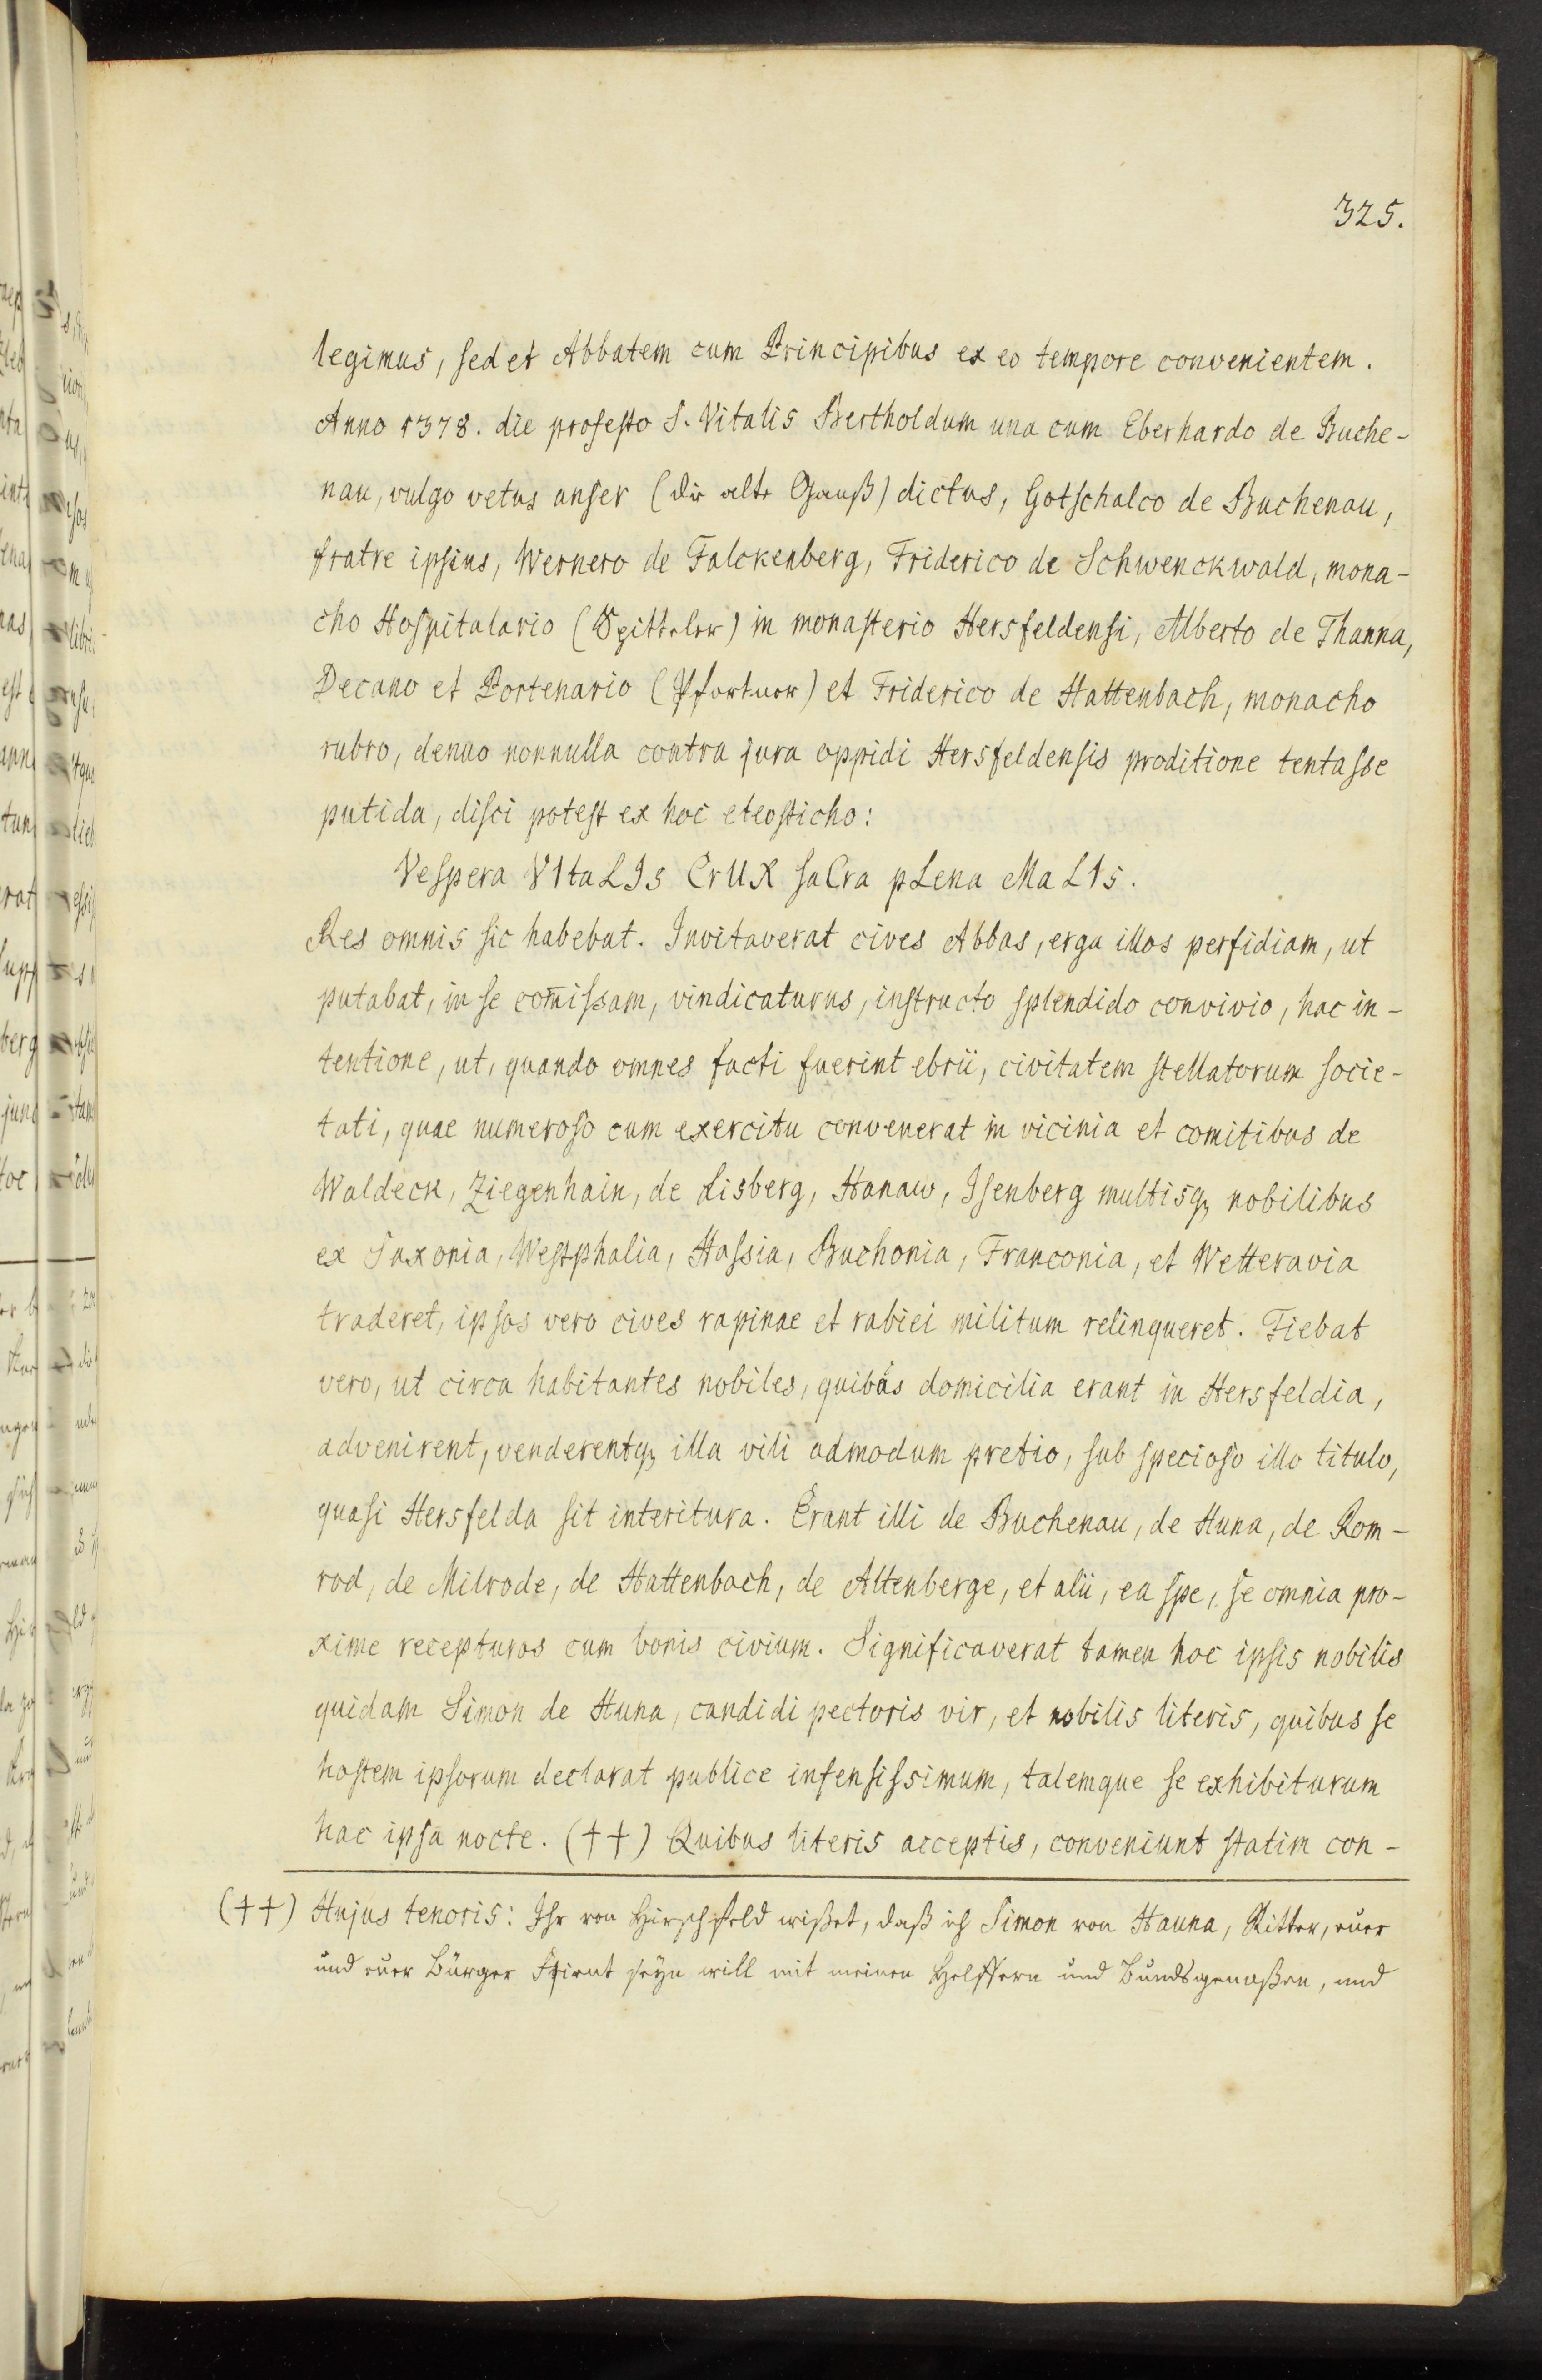 325.
legimus, sed et Abbatem cum Principibus ex eo tempore convenientem.
Anno 1378. die profesto S. Vitalis Bertholdum una cum Eberhardo de Buche-
nau, vulgo vetus anser (die alte Ganß) dictus, Gotschalco de Buchenau,
fratre ipsius, Wernero de Falckenberg, Friderico de Schwenckwald, mona-
cho Hospitalario (Spitteler) in monasterio Hersfeldensi, Alberto de Thanna,
Decano et Portenario (Pfortner) et Friderico de Hattenbach, monacho
rubro, denuo nonnulla contra jura oppidi Hersfeldensis proditione tentasse
putida, disci potest ex hoc eteosticho:
Vespera VItaLIs CrUX saCra pLena MaLIs.
Res omnis sic habebat. Invitaverat cives Abbas, erga illos perfidiam, ut
putabat, in se com̅issam, vindicaturus, instructo splendido convivio, hac in-
tentione, ut, quando omnes facti fuerint ebrii, civitatem stellatorum socie-
tati, quae numeroso cum exercitu convenerat in vicinia et comitibus de
Waldeck, Ziegenhain, de Lisberg, Hanaw, Isenberg multisq; nobilibus
ex Saxonia, Westphalia, Hassia, Buchonia, Franconia, et Wetteravia
traderet, ipsos vero cives rapinae et rabiei militum relinqueret. Fiebat
vero, ut circa habitantes nobiles, quibus domicilia erant in Hersfeldia,
advenirent, venderentq; illa vili admodum pretio, sub specioso illo titulo,
quasi Hersfelda sit interitura. Erant illi de Buchenau, de Huna, de Rom-
rod, de Milrode, de Hattenbach, de Altenberge, et alii, ea spe, se omnia pro-
xime recepturos cum bonis civium. Significaverat tamen hoc ipsis nobilis
quidam Simon de Huna, candidi pectoris vir, et nobilis literis, quibus se
hostem ipsorum declarat publice infensissimum, talemque se exhibiturum
hac ipsa nocte. (††) Quibus literis acceptis, conveniunt statim con-
(††) Hujus tenoris: Ihr von Hirschfeld wißet, daß ich Simon von Hauna, Ritter, euer
und euer Bürger Feient seyn will mit meinen Helffern und Bundsgenoßen, und